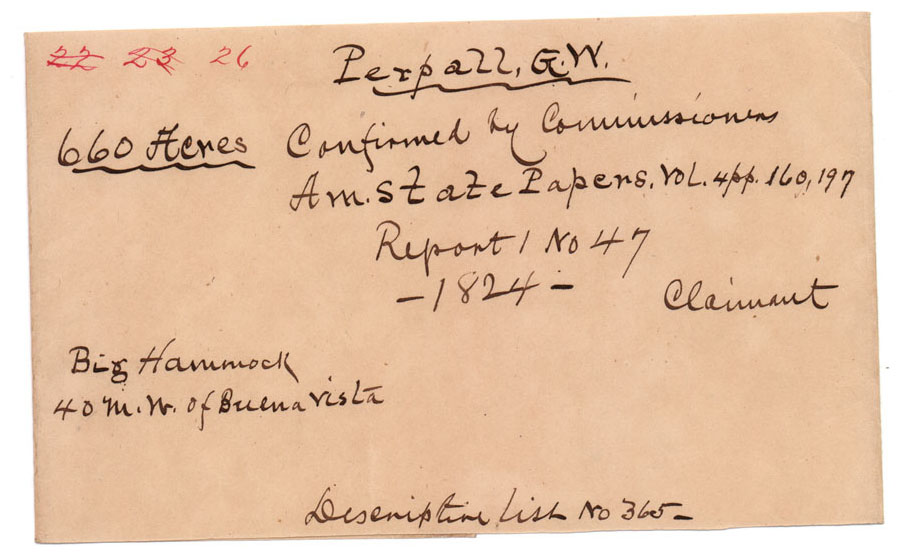 22 23 26
Perpall, G.W.
660 Acres Confirmed by Commissioners
Am. State Papers. Vol. 4 pp. 160, 197
Report 1 No 47
- 1824 -
Claimant
Big Hammock
40 M. W. of Buena Vista
Descriptive list No 365-